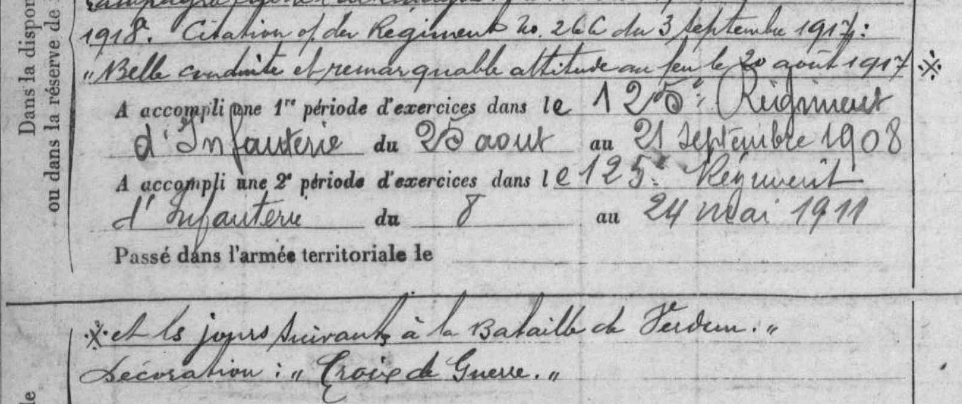 Dans la dispon
ou dans la réserve de
1918. Citation of du Régiment No. 266 du 3 septembre 1917:
"Belle conduite et remarquable attitude au feu le 20 août 1917 ※
A accompli une 1re période d'exercices dans le 125e Régiment
d'Infanterie du 25 aout au 21 septembre 1908
A accompli une 2e période d'exercices dans le 125e Régiment
d'Infanterie du 8 au 24 mai 1911
Passé dans l'armée territoriale le
※ et ls jours suivants à la Bataille de Verdun."
Décoration : "Croix de Guerre."